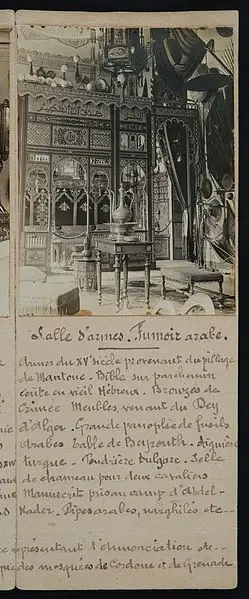 Salle d'armes. Fumoir arabe.
Armes du XVe siècle provenant du pillage
de Mantoue. Bible sur parchemin
écrite en vieil Hébreux. Bronzes de
Crimée Meubles venant du Dey
d'Alger. Grande panoplée de fusils
Arabes Table de Beyrouth. Aiguière
turque. Poudrière Bulgare. Selle
de chameau pour deux cavaliers
Manuscrit pris au camp d'Abdel-
Kader. Pipes arabes, narghilés etc--
représentant l'Annonciation etc--
des mosquées de Cordoue et de Grenade